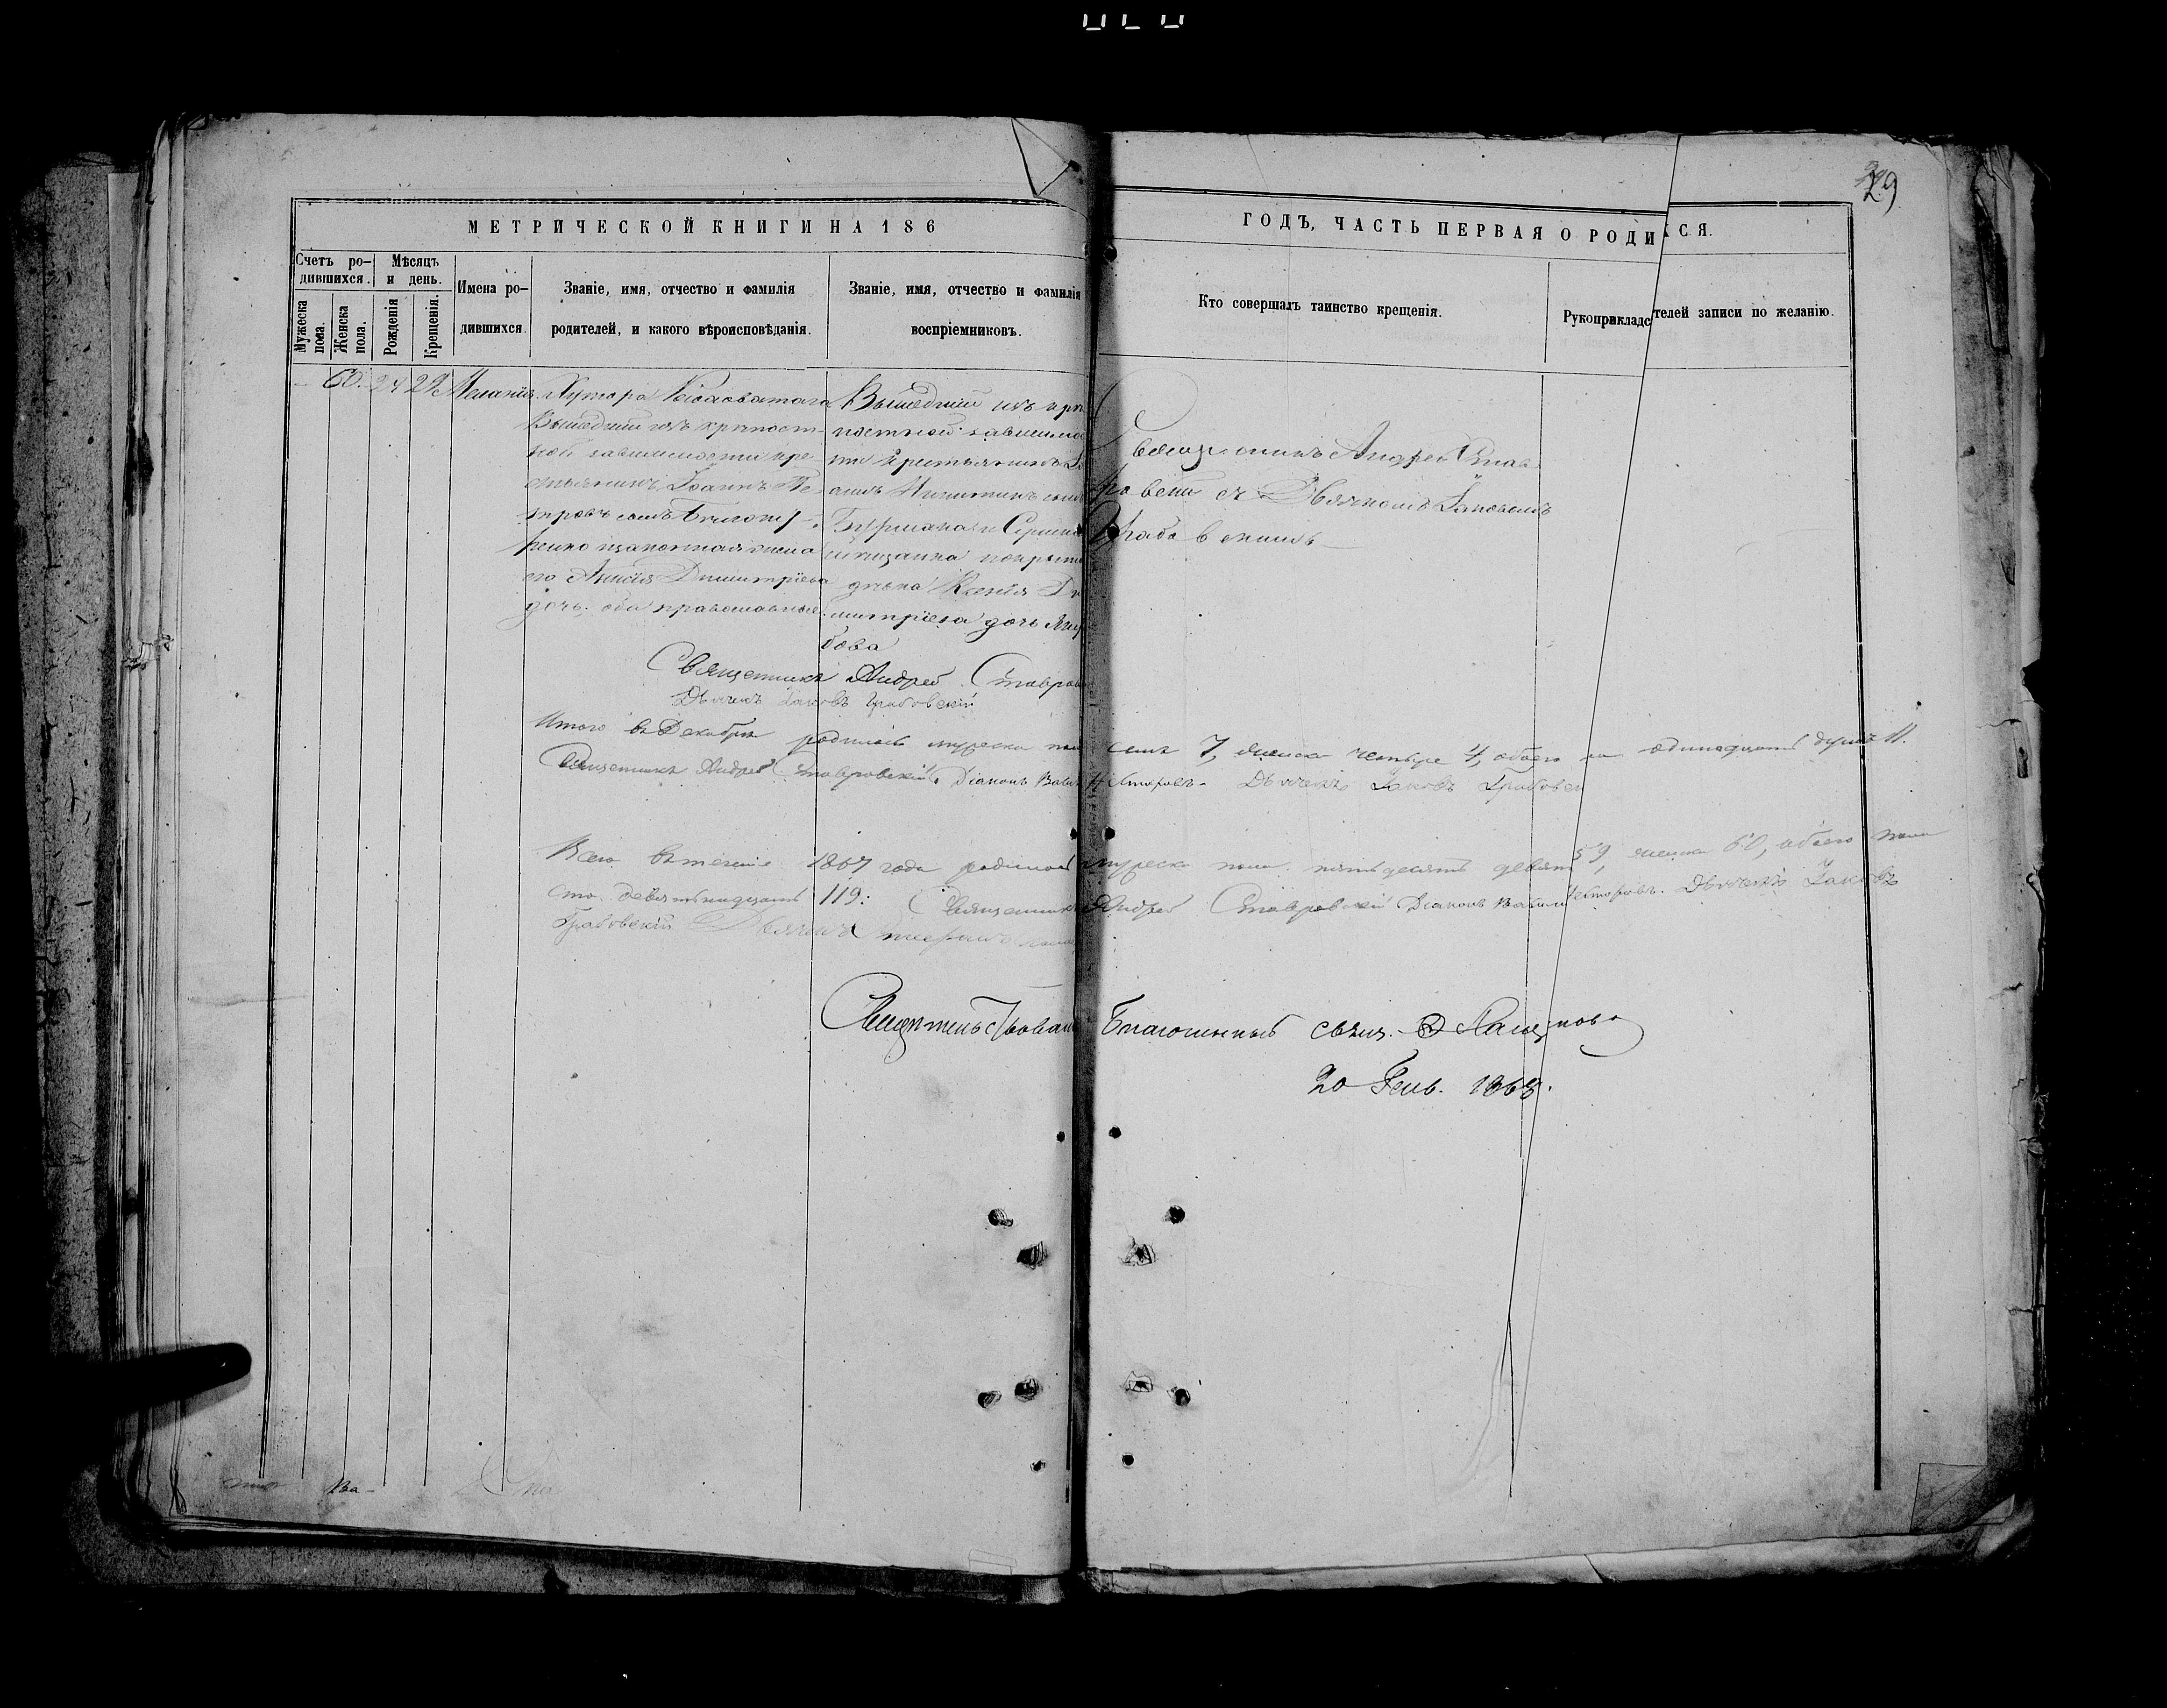 29
МЕТРИЧЕСКОЙ КНИГИ НА 186
ГОДЪ, ЧАСТЬ ПЕРВАЯ О РОДИ
СЯ.
Счетъ ро-
дившихся.
Мужеска
пола.
Женска
пола.
Мѣсяцъ
и день.
Рожденія
Крещенія.
Имена ро-
дившихся.
Званіе, имя, отчество и фамилія
родителей, и какого вѣроисповѣданія.
Званіе, имя, отчество и фамилія
воспріемниковъ.
Кто совершалъ таинство крещенія.
Рукоприкладс
телей записи по желанію.
60. 24 29 Меланія
Хутора
Вышедшій изъ крѣпост-
ной зависимости кре-
стьянинъ Іоаннъ Пе-
тровъ сынъ
ренко и законная жена
его Анисія Димитріева
дочь, оба православные.
Вышедшій изъ крѣ
постной зависимос
ти крестьянинъ
Никитинъ сынъ
Ксенія Ди
митріева дочь
бова
Священникъ Андрей Став
ровскій съ Дьячкомъ Іаковомъ
Грабовскимъ
Священникъ Андрей Ставров
Дьячекъ Іаковъ Грабовскій
Итого въ Декабрѣ родилось мужеска пол семь 7, женска четыре 4, обоего по одинадцать душъ 11.
Священникъ Андрей Ставровскій. Діаконъ Вавил Несторовъ. Дьячекъ Іаковъ Грабовск
Всего въ теченіе 1867 года родилось мужеска пола пятьдесятъ девять 59, женска 60, обоего пола
сто девятьнадцать 119: Священникъ Андрей Ставровскій Діаконъ Вавил Несторовъ. Дьячекъ Іаковъ
Грабовскій Дьячекъ
Свидѣтельствовалъ Благочинный свящ.
20 Генв. 1868.